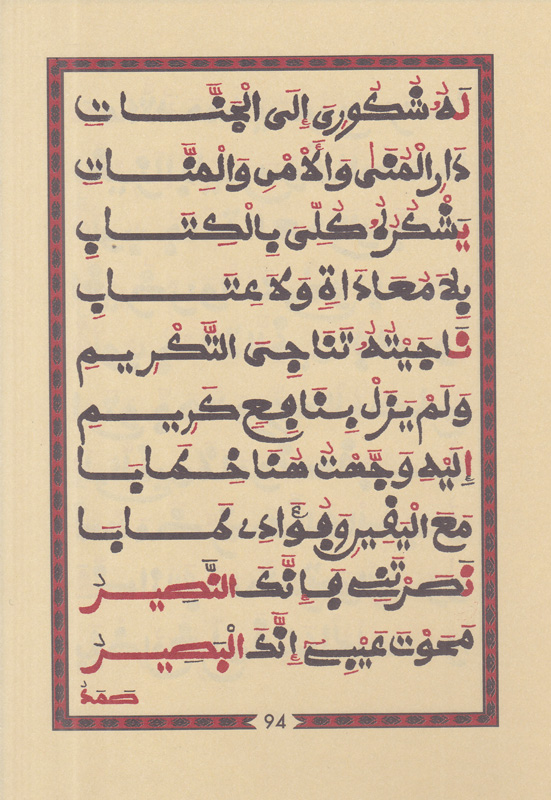 لَهُ شُكُورِيَ إِلَى الْجَنَّاتِ
دَارِ الْمُنَى وَالْأَمْنِ وَالْمِنَّاتِ
يَشْكُرُهُ كُلِّيَ بِالْكِتَابِ
بِلَا مُعَادَاةٍ وَلَا عِتَابِ
نَاجَيْتُهُ تَنَاجِيَ التَّكْرِيمِ
وَلَمْ يَزَلْ بِنَافِعٍ كَرِيمِ
إِلَيْهِ وَجَّهْتُ هُنَا خِطَابَا
مَعَ الْيَقِينِ وَفُؤَادِي طَابَا
نَصَرْتَنِي فَإِنَّكَ النَّصِيرُ
مَحَوْتَ عَيْبِيَ إِنَّكَ الْبَصِيرُ
94